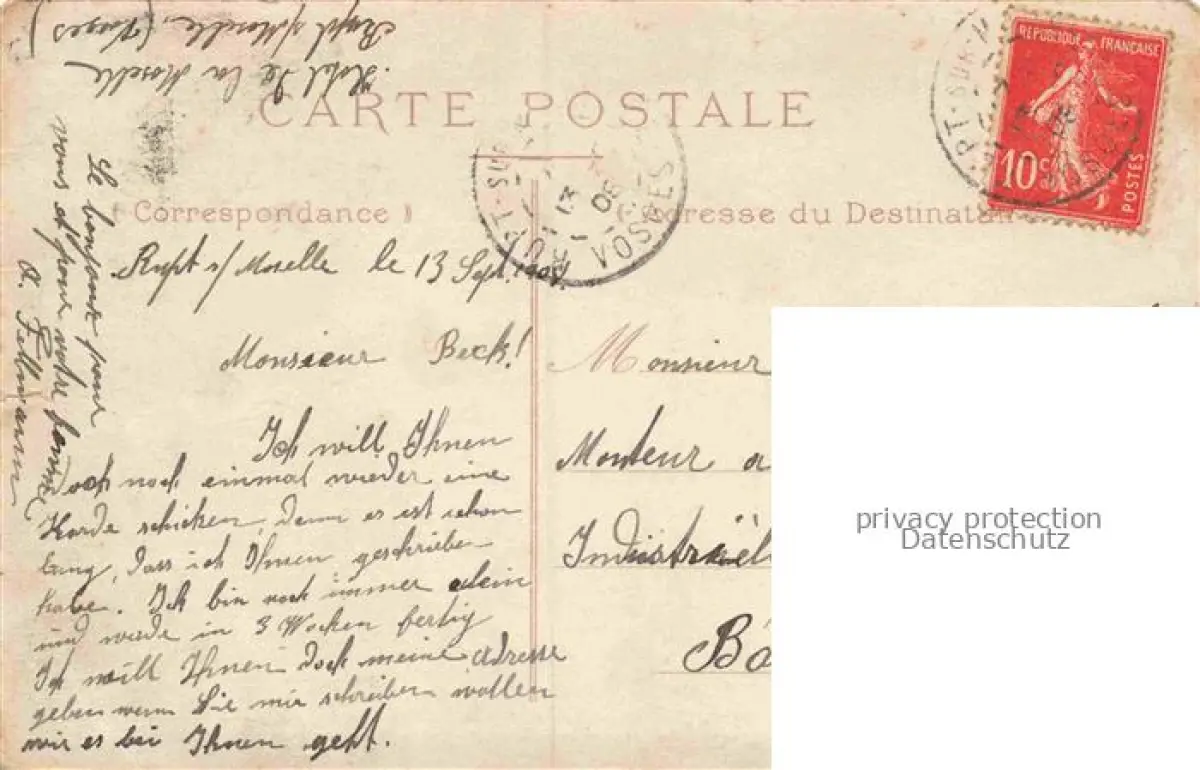 Hotel de la Moselle
Rupt s/Moselle (Vosges)
CARTE POSTALE
Correspondance
Adresse du Destinata
REPUBLIQUE FRANÇAISE
10c
POSTES
RUPT-SUR
13
08
VOSGES
Rupt s/Moselle le 13 Sept.
Monsieur Beck!
Ich will Ihnen
doch noch einmal wieder eine
Karde schicken, denn es ist schon
lang, dass ich Ihnen geschrieben
habe. Ich bin noch immer alein
und werde in 3 Wochen fertig
Ich will Ihnen doch meine adresse
geben wenn Sie mir schreiben wollen
wie es bei Ihnen geht.
Le bonjour pour
vous et pour votre famille
A. Fellmann
Monsieur
Monteur a
Industriel
Bâ
privacy protection
Datenschutz